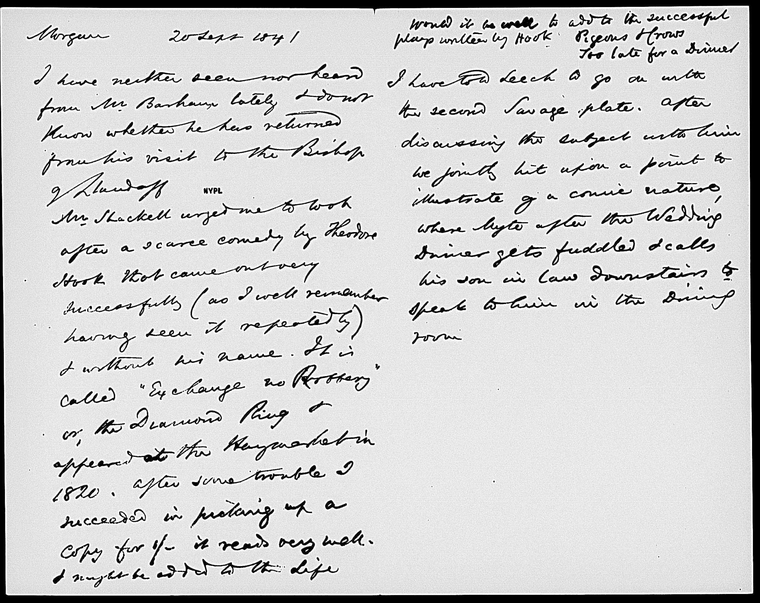 Morgan 20 Sept 1841
I have neither seen nor heard
from Mr. Barham lately & do not
Know whether he has returned
from his visit to the Bishop
of Llandaff
NYPL
Mr. Shackell urged me to look
after a scarce comedy by Theodore
Hook that came out very
successfully (as I well remember
having seen it repeatedly)
& without his name. It is
called "Exchange no Robbery"
or, the Diamond Ring &
appeared at the Haymarket in
1820. After some trouble I
succeeded in picking up a
copy for 1/- it reads very well.
& might be added to the Life
Would it be well to add to the successful
plays written by Hook Pigeons & Crows
Too late for a Dinner
I have told Leech to go on with
the second Savage plate. After
discussing the subject with him
we jointly hit upon a point to
illustrate of a comic nature,
where after the Wedding
Dinner gets fuddled & calls
his son in law downstairs to
speak to him in the Dining
room